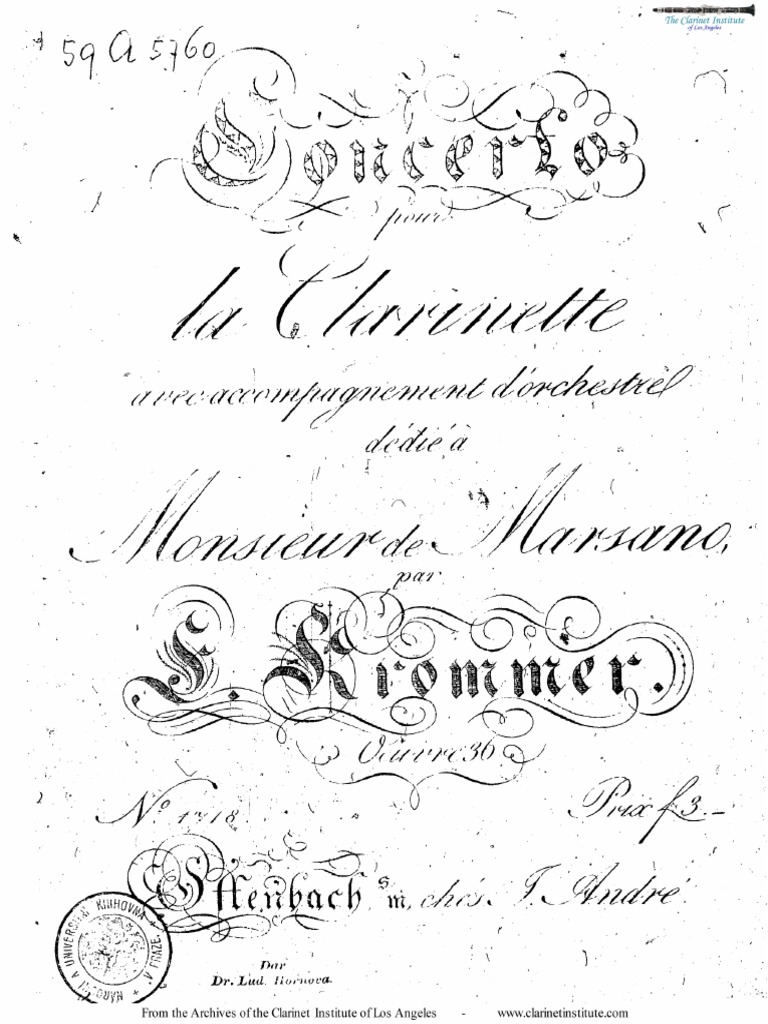 The Clarinet Institute
of Los Angeles
59 A 5760
Concerto
pour
la Clarinette
avec accompagnement d'orchestre
dédié à
Monsieur de Marsano,
par
F. Krommer.
Oeuvre 36
No. 1718.
Prix f 3.—
Offenbach s/m, chés J. André
NÁRODNÍ A UNIVERSITNÍ KNIHOVNA V PRAZE
Dar
Dr. Lud. Hornova.
From the Archives of the Clarinet Institute of Los Angeles - www.clarinetinstitute.com